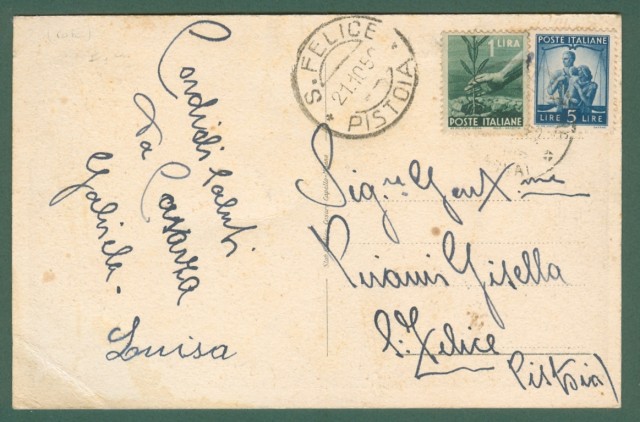 Cordiali Saluti
da Casanza
Gabriela.
Luisa
S. FELICE
21.10.50
* PISTOIA *
1 LIRA
POSTE ITALIANE
POSTE ITALIANE
LIRE 5 LIRE
Sig.re Gent.me
Pisanis Gisella
S. Felice
(Pistoia)